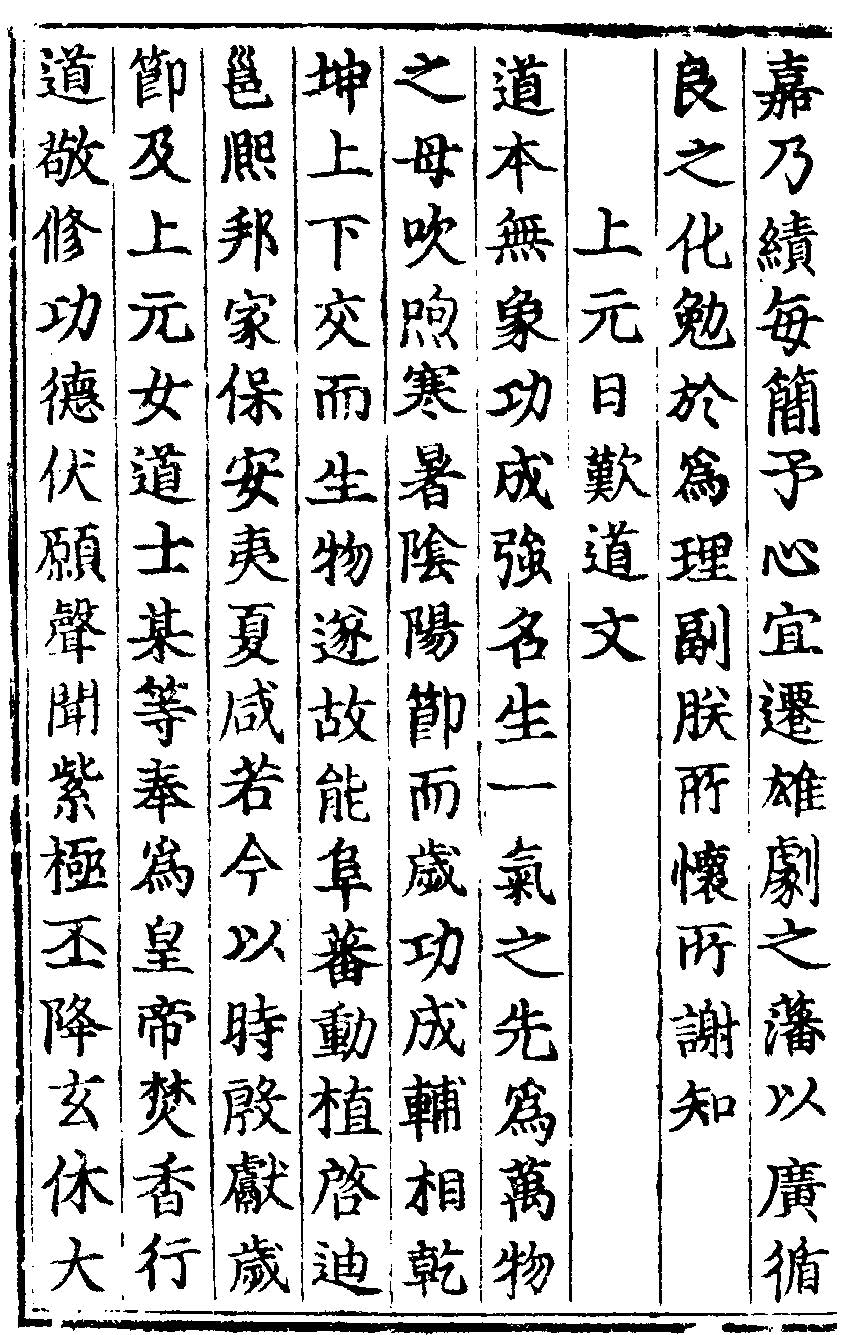 嘉乃績每簡予心宜遷雄劇之藩以廣循
良之化勉於為理副朕所懷所謝知
上元日歎道文
道本無象功成強名生一氣之先為萬物
之母吹煦寒暑陰陽節而歲功成輔相乾
坤上下交而生物遂故能阜蕃動植啓迪
邕熈邦家保安夷夏咸若今以時殷獻歲
節及上元女道士某等奉為皇帝焚香行
道敬修功德伏願聲聞紫極丕降玄休大